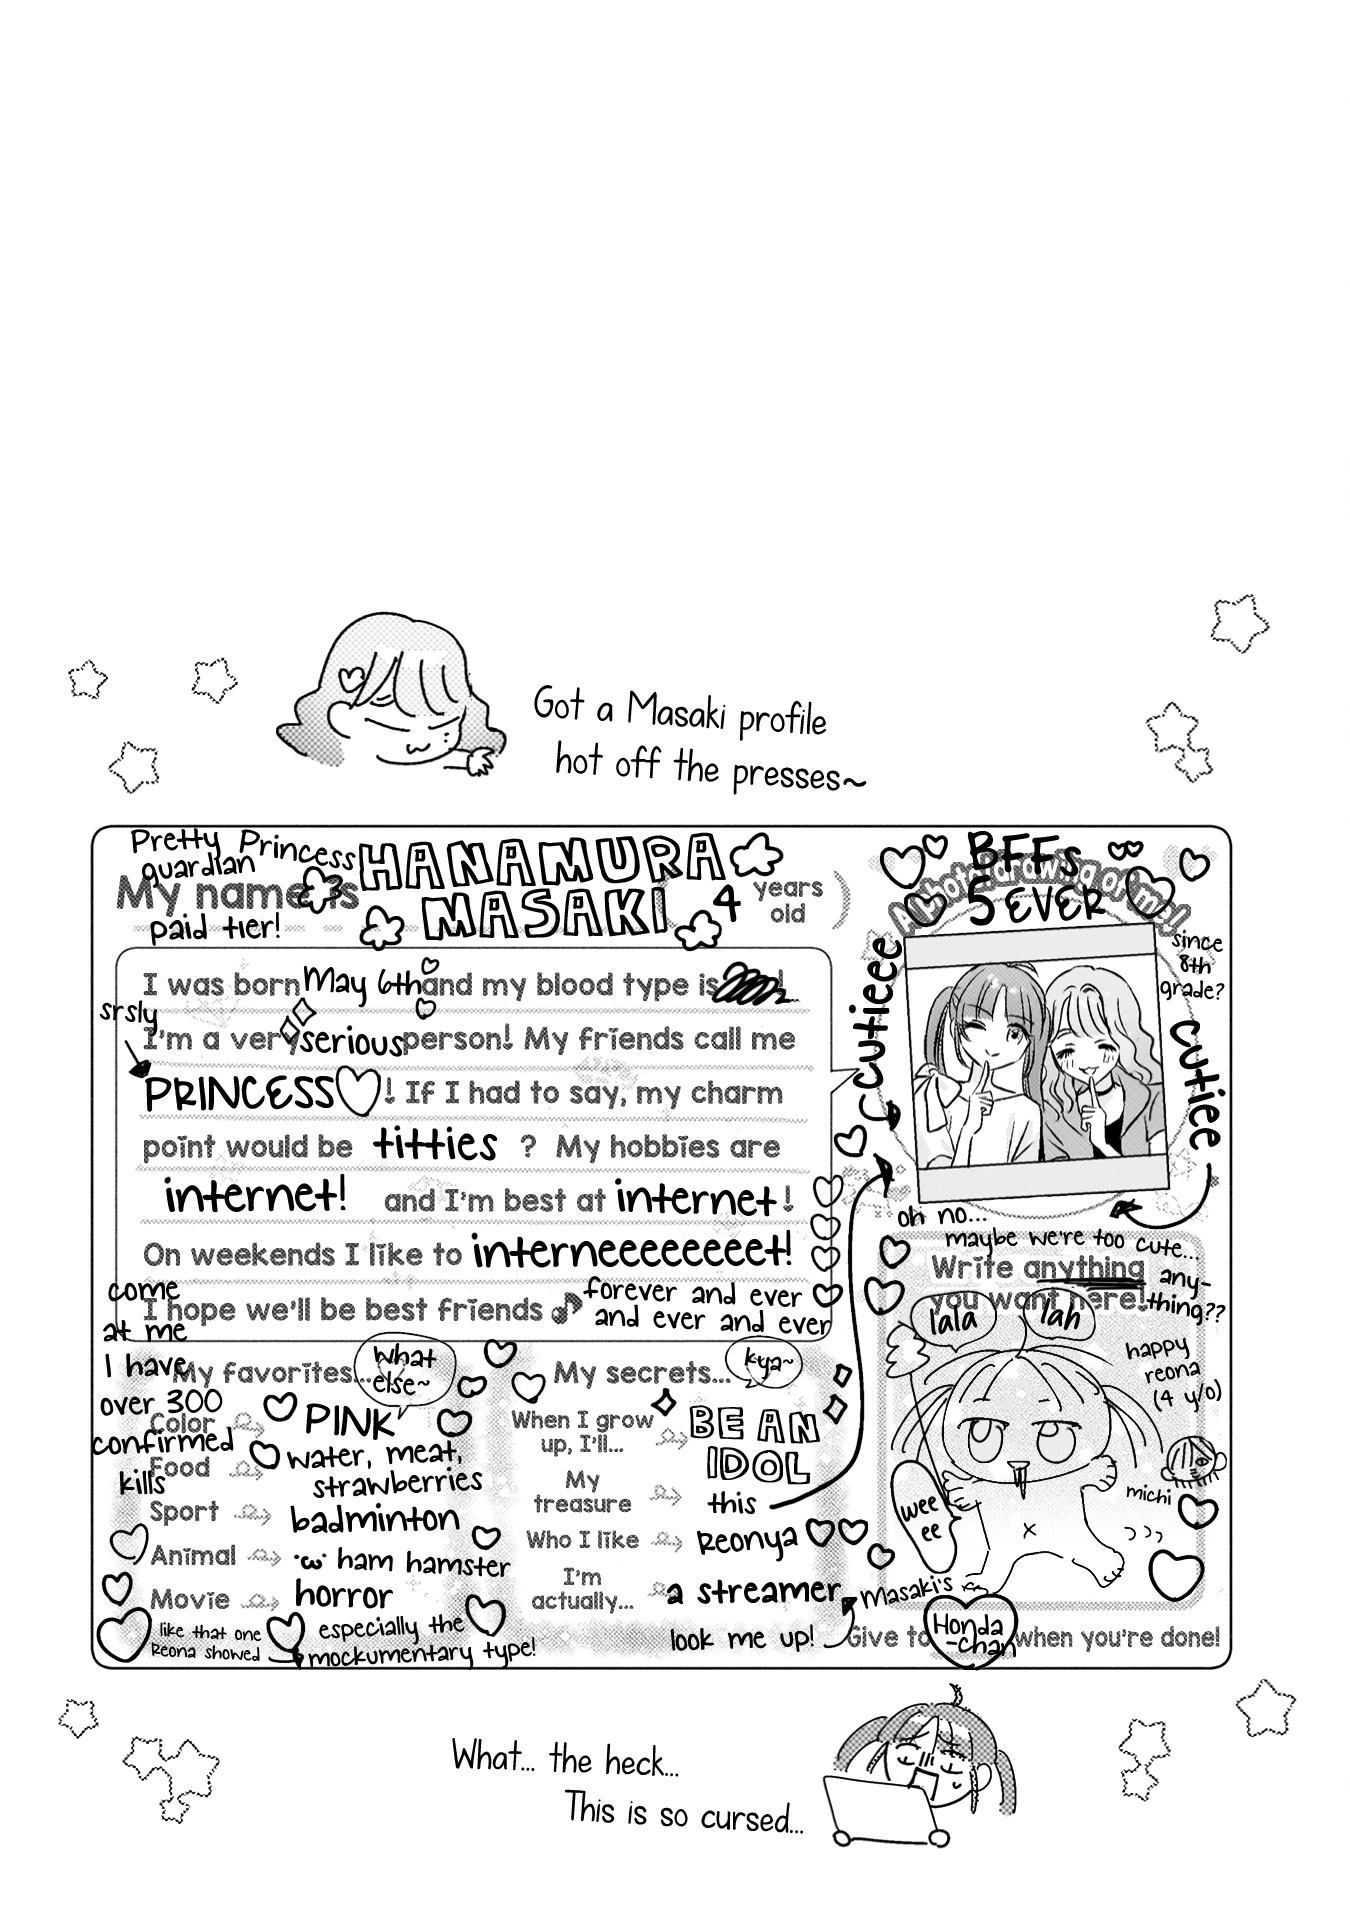 Got a Masaki profile
hot off the presses~
Pretty Princess
guardian
My name is
HANAMURA
MASAKI
paid tier!
( 4 years
old )
I was born May 6th and my blood type is
srsly
I'm a very serious person! My friends call me
PRINCESS♡! If I had to say, my charm
point would be titties ? My hobbies are
internet! and I'm best at internet!
On weekends I like to interneeeeeeeet!
I hope we'll be best friends♪ forever and ever
and ever and ever
come
at me
I have
over 300
confirmed
kills
My favorites...
what
else~
Color PINK
Food water, meat,
strawberries
Sport badminton
Animal ·ω· ham hamster
Movie horror
like that one
Reona showed
especially the
mockumentary type!
My secrets...
kya~
When I grow
up, I'll...
BE AN
IDOL
My
treasure
this
Who I like Reonya ♡♡
I'm
actually...
a streamer
look me up!
A photo/drawing of me!
BFFs
5 EVER
since
8th
grade?
cutieee
cutiee
oh no...
maybe we're too cute...
Write anything
you want here!
any-
thing??
lala
lah
happy
reona
(4 y/o)
wee
ee
michi
Masaki's
Give to Honda
-chan when you're done!
What... the heck...
This is so cursed...